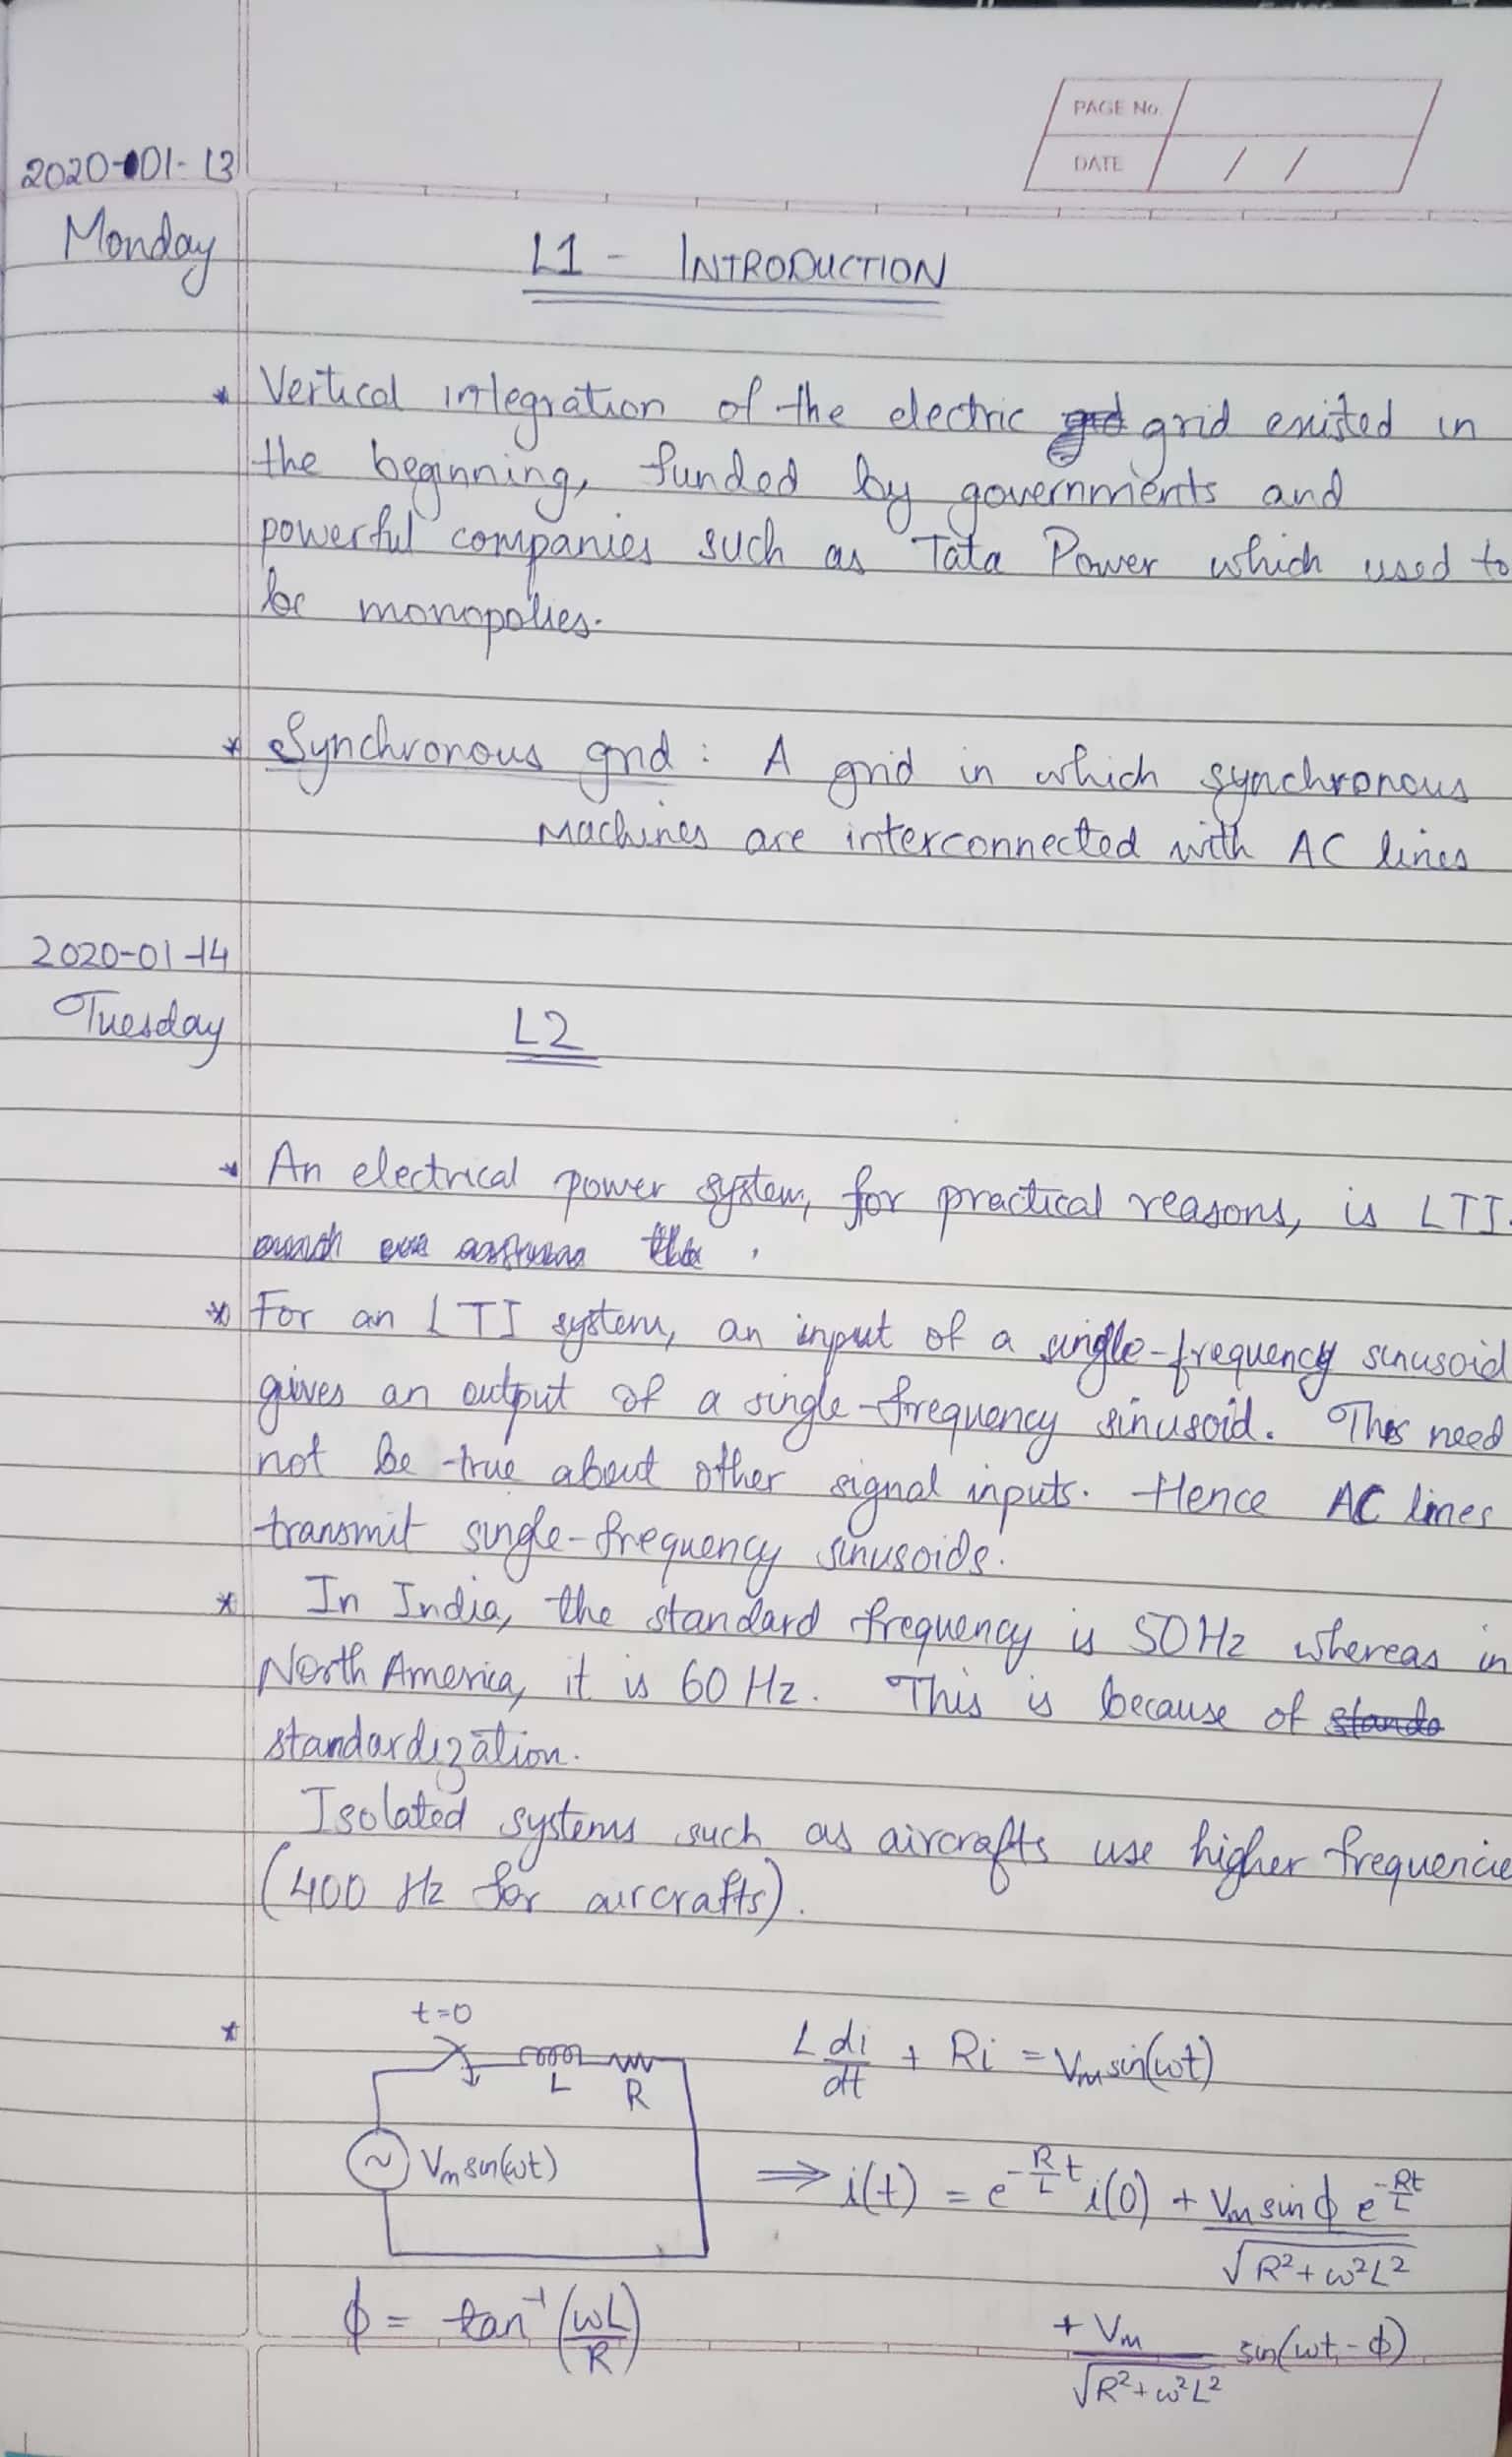 PAGE No.
DATE / /
2020-01-13
Monday
L1 - INTRODUCTION
* Vertical integration of the electric grid existed in
the beginning, funded by governments and
powerful companies such as Tata Power which used to
be monopolies.
* Synchronous grid : A grid in which synchronous
machines are interconnected with AC lines
2020-01-14
Tuesday
L2
* An electrical power system, for practical reasons, is LTI.
* For an LTI system, an input of a single-frequency sinusoid
gives an output of a single-frequency sinusoid. This need
not be true about other signal inputs. Hence AC lines
transmit single-frequency sinusoids.
* In India, the standard frequency is 50Hz whereas in
North America, it is 60 Hz. This is because of stando
standardization.
Isolated systems such as aircrafts use higher frequencie
(400 Hz for aircrafts).
*
t=0
L
R
Vm sin(ωt)
L di/dt + Ri = Vm sin(ωt)
⇒ i(t) = e^(-R/L t) i(0) + Vm sin ϕ e^(-Rt/L) / √(R²+ω²L²)
ϕ = tan⁻¹(ωL/R)
+ Vm / √(R²+ω²L²) sin(ωt-ϕ)